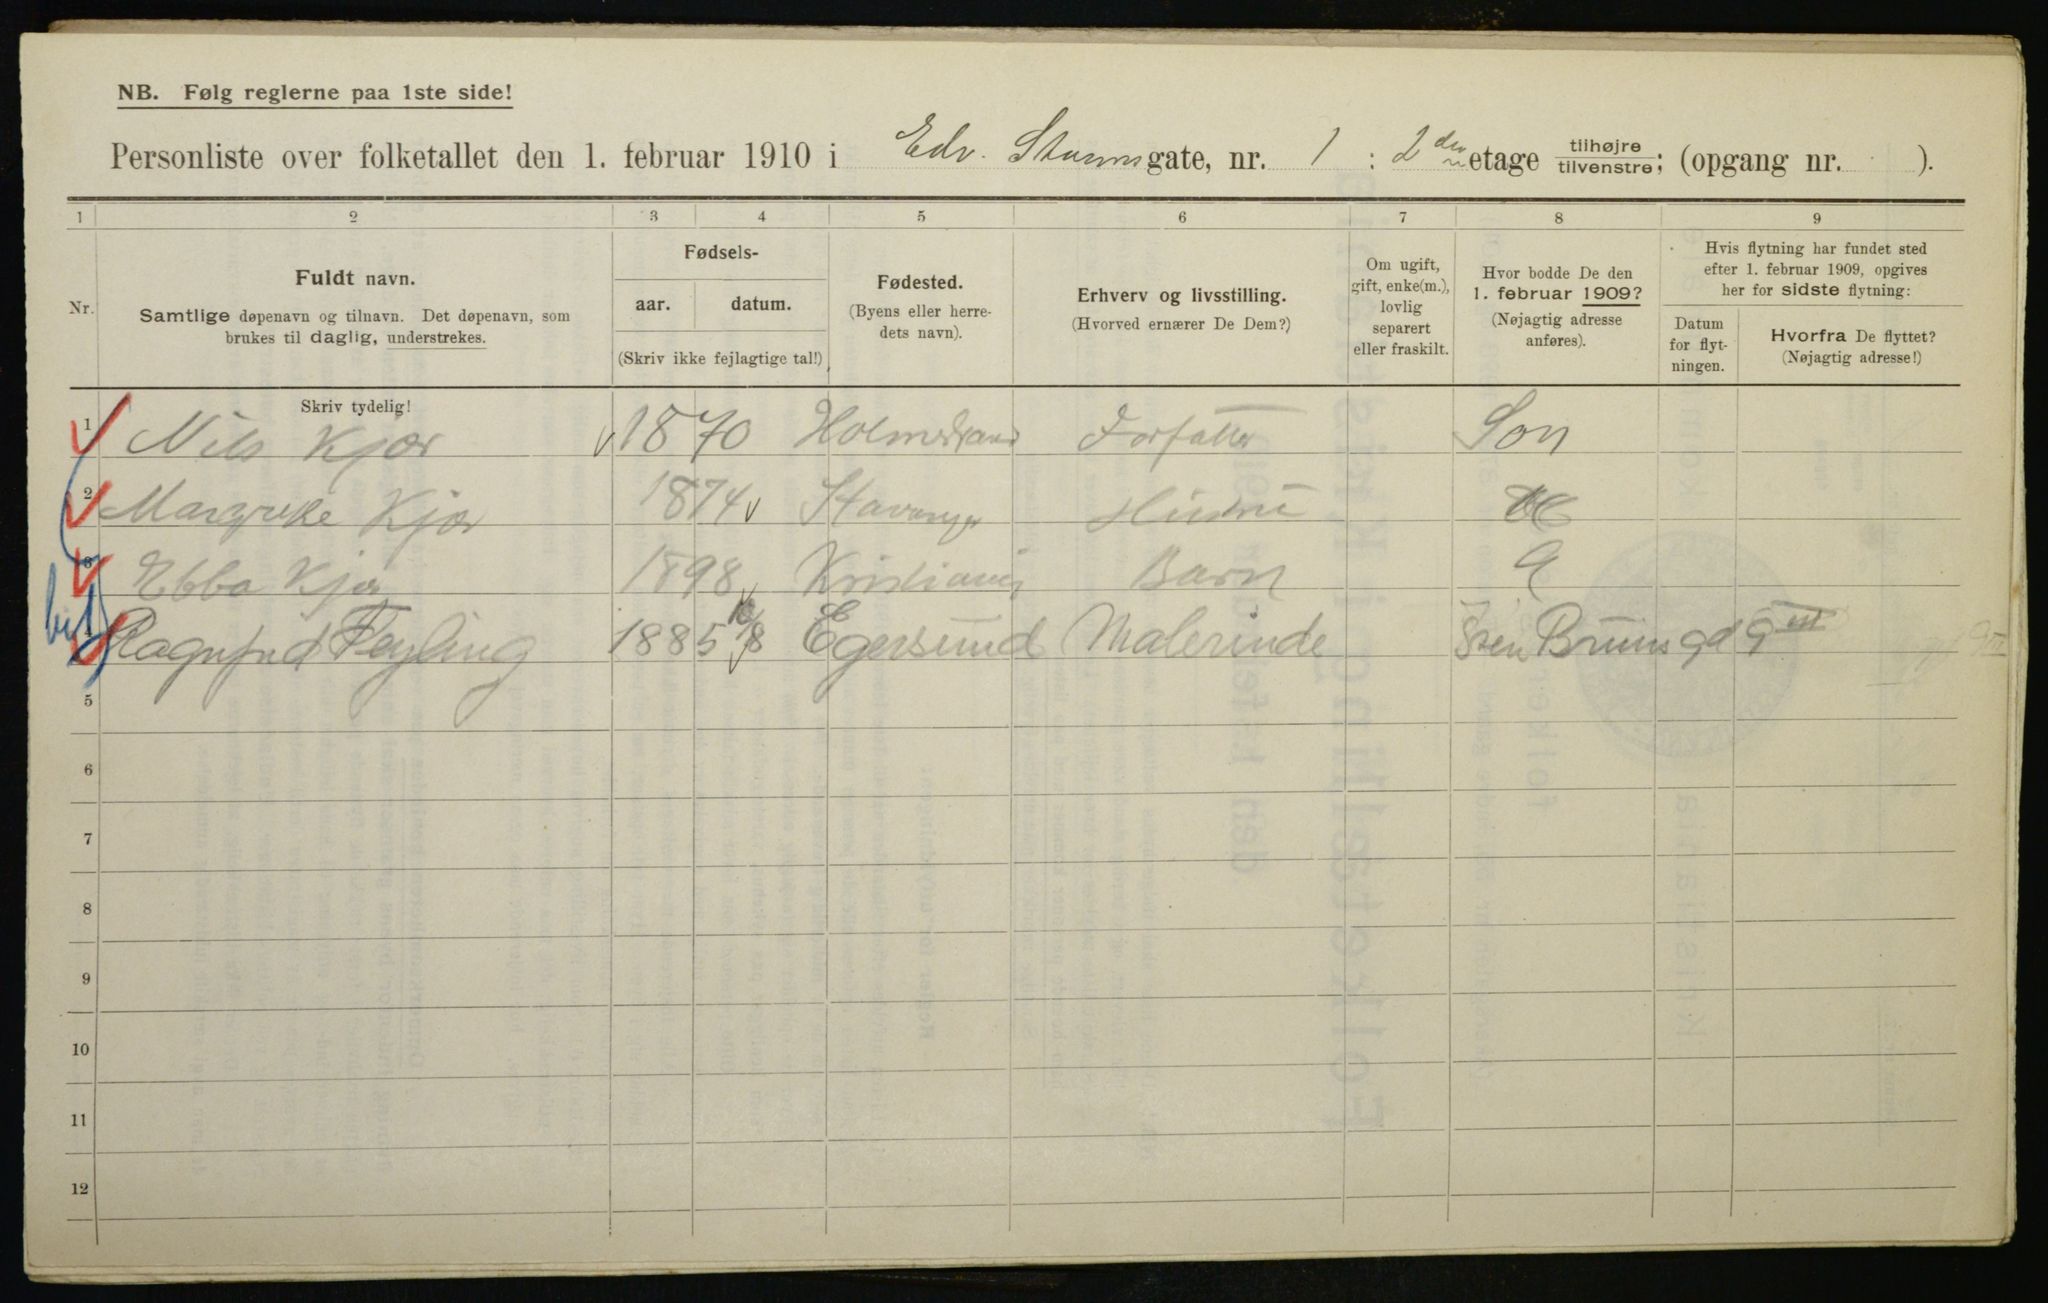 NB. Følg reglerne paa 1ste side!
Personliste over folketallet den 1. februar 1910 i Edv. Stormsgate, nr. 1 : 2den etage tilhøjre tilvenstre; (opgang nr. ).
1 2 3 4 5 6 7 8 9
Nr.
Fuldt navn.
Samtlige døpenavn og tilnavn. Det døpenavn, som
brukes til daglig, understrekes.
Fødsels-
aar. datum.
(Skriv ikke fejlagtige tal!)
Fødested.
(Byens eller herre-
dets navn).
Erhverv og livsstilling.
(Hvorved ernærer De Dem?)
Om ugift,
gift, enke(m.),
lovlig
separert
eller fraskilt.
Hvor bodde De den
1. februar 1909?
(Nøjagtig adresse
anføres).
Hvis flytning har fundet sted
efter 1. februar 1909, opgives
her for sidste flytning:
Datum
for flyt-
ningen.
Hvorfra De flyttet?
(Nøjagtig adresse!)
Skriv tydelig!
1 Nils Kjær 1870 Holmestrand Forfatter Son
2 Margrethe Kjær 1874 Stavanger Hustru
3 Ebba Kjær 1898 Kristiania Barn
4 Ragnfrid Feyling 1885 Egersund Malerinde Sven Bruns gd 9 III
5
6
7
8
9
10
11
12